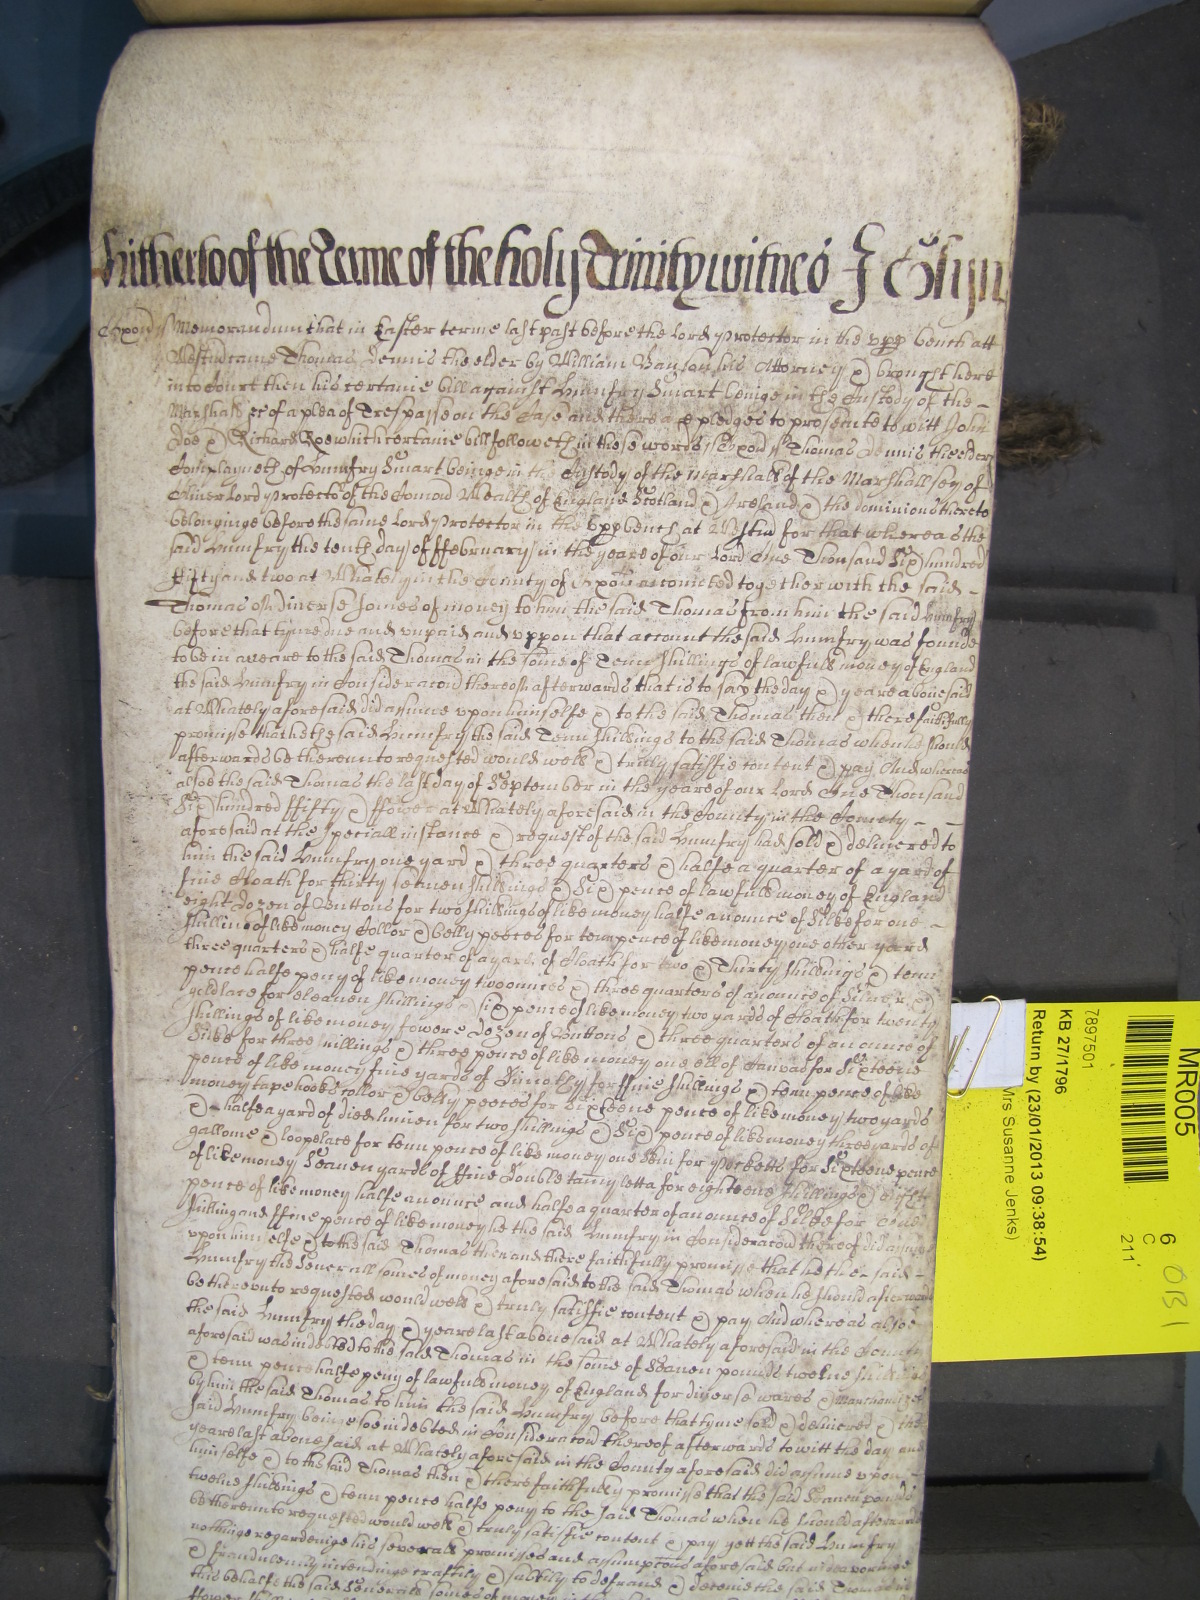 hitherto of the Terme of the holy Trinity witnes J Glyn
Oxon ss Memorandum that in Easter terme last past before the Lord Protector in the upp bench att
Westm came Thomas Dennis the elder by William his Attorney & brought here
into Court then his certaine bill against Humfry Smart beinge in the Custody of the -
Marshall &c of a plea of Trespasse on the Case and there are pledges to prosecute to witt John
Doe & Richard Roe which certaine bill followeth in these words ss Oxon ss Thomas Dennis the elder
Complayneth of Humfry Smart beinge in the Custody of the Marshall of the Marshallsey of
Oliver Lord Protector of the Comon Wealth of England Scotland & Ireland & the dominions thereto
belonginge before the same Lord Protector in the upp bench at Westm for that whereas the
said Humfry the tenth day of ffebruary in the yeare of our Lord One Thousand Six hundred
fifty and two at Whately in the County of Oxon accompted together with the said -
Thomas of diverse somes of money to him the said Thomas from him the said Humfry
before that tyme due and unpaid and uppon that account the said Humfry was founde
to be in areare to the said Thomas in the some of Tenn shillings of lawfull money of England
the said Humfry in Consideracon thereof afterwards that is to say the day & yeare abovesaid
at Whately aforesaid did assume upon himselfe & to the said Thomas then & there faithfully
promise that he the said Humfry the said Tenn shillings to the said Thomas when he should
afterwards be thereunto requested would well & truly satisfie content & pay And whereas
alsoe the said Thomas the last day of September in the yeare of our Lord One Thousand
Six hundred ffifty & ffower at Whately aforesaid in the County in the County - -
aforesaid at the speciall instance & request of the said Humfry had sold & delivered to
him the said Humfry one yard & three quarters & halfe a quarter of a yard of
fine Cloath for thirty seaven shillings & Six pence of lawfull money of England
eight dozen of Buttons for two shillings of like money halfe an ounce of Silke for one -
shilling of like money Collor & belly peeces for tenn pence of like money one other yeard
three quarters & halfe quarter of a yard of Cloath for two & Thirty shillings & tenn
pence halfe peny of like money two ounces & three quarters of an ounce of Silver &
gold lace for eleaven shillings & six pence of like money two yards of Cloath for twenty
shillings of like money fowere dozen of Buttons & three quarters of an ounce of
Silke for three shillings & three pence of like money one ell of Canvas for Sixteene
pence of like money five yards of Dimethy for ffive shillings & tenn pence of like
money tape hooks collor & belly peeces for Sixteene pence of like money two yards
& halfe a yard of died linnen for two shillings & Six pence of like money three yards of
gallome & loopelace for tenn pence of like money one skin for Pocketts for Sixteene pence
of like money Seaven yards of ffine Double for eighteene shillings &
pence of like money halfe an ounce and halfe a quarter of an ounce of Silke for One
shilling and ffive pence of like money he the said Humfry in Consideracon thereof did assume
upon himselfe & to the said Thomas then and there faithfully promisse that he the said -
Humfry the severall somes of money aforesaid to the said Thomas when he should afterwards
be thereunto requested would well & truly satisfie content & pay And whereas alsoe
the said Humfry the day & yeare last abovesaid at Whately aforesaid in the County
aforesaid was indebted to the said Thomas in the some of Seaven pounds twelve shillings
& tenn pence halfe peny of lawfull money of England for diverse wares & Marchandizes
by him the said Thomas to him the said Humfry before that tyme sold & delivered & the
said Humfry beinge soe indebted in Consideracon thereof afterwards to witt the day and
yeare last abovesaid at Whately aforesaid in the County aforesaid did assume upon -
himselfe & to the said Thomas then & there faithfully promisse that the said Seaven pounds
twelve shillings & tenn pence halfe peny to the said Thomas when he should afterwards
be thereunto requested would well & truly satisfie content & pay yett the said Humfry
nothinge regardeinge his severall promisses and assumptions aforesaid but
& fraudulently intendinge craftily & subtilly to defraud & deceive the said Thomas in
this behalfe the said severall somes of money
MR005
7897501
KB 27/1796
Return by (23/01/2013 09:38:54)
Mrs Susanne Jenks)
6
C
211